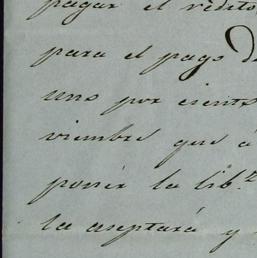 pagar el redito
para el pago d
uno por cient
viembre que á
poner la lib.ª
la aseptará y